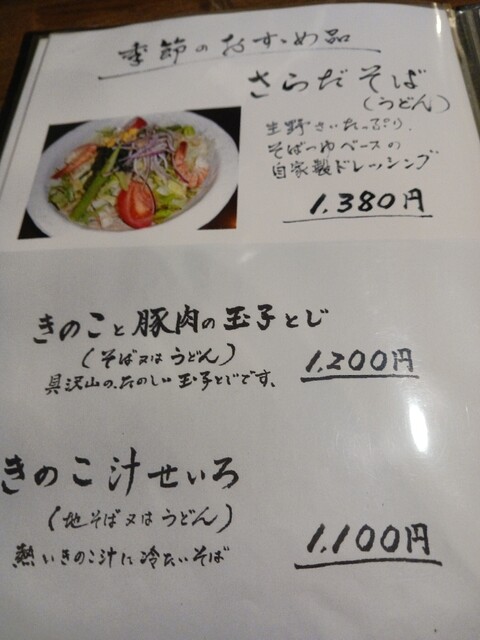 季節のおすすめ品
さらだそば
(うどん)
生野さいたっぷり、
そばつゆベースの
自家製ドレッシング
1,380円
きのこと豚肉の玉子とじ
(そば又はうどん)
1,200円
具沢山の、たのしい玉子とじです、
きのこ汁せいろ
(地そば又はうどん)
1,100円
熱いきのこ汁に冷たいそば